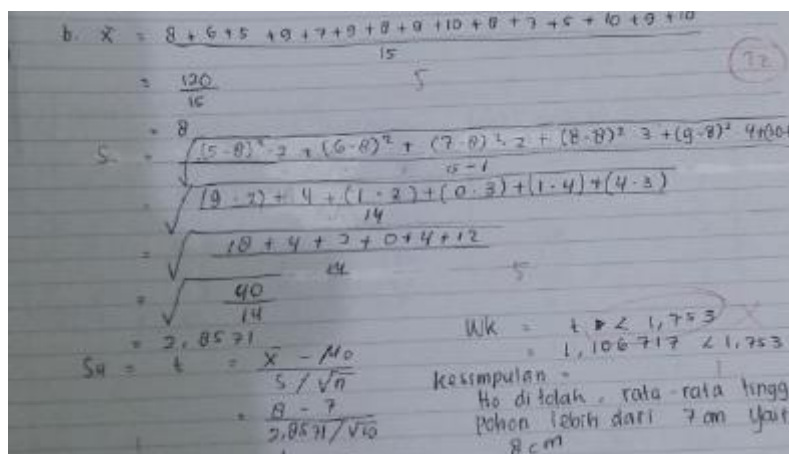 b. x̄ = 8 + 6 + 5 + 9 + 7 + 9 + 8 + 9 + 10 + 8 + 7 + 5 + 10 + 9 + 10
15
= 120
15
5
= 8
S = √ (5-8)² · 2 + (6-8)² + (7-8)² · 2 + (8-8)² 3 + (9-8)² 4 + (10-
15-1
√ (9 · 2) + 4 + (1 · 2) + (0 · 3) + (1 · 4) + (4 · 3)
14
= √ 18 + 4 + 2 + 0 + 4 + 12
14
5
= √ 40
14
= 2,8571
Wk = t < 1,753
= 1,106717 < 1,753
SH = t = x̄ - μ₀
S / √n
= 8 - 7
2,8571/√10
kesimpulan =
Ho ditolak, rata-rata tingg
pohon lebih dari 7 cm yait
8 cm